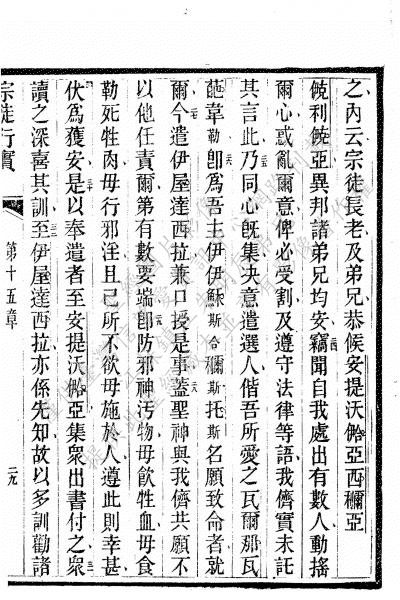 之內云宗徒長老及弟兄恭候安提沃餎亞西穪亞
餎利餎亞異邦諸弟兄均安竊聞自我處出有數人動搖
爾心惑亂爾意俾必受割及遵守法律等語我儕實未託
其言此乃同心既集決意遣選人偕吾所愛之瓦爾那瓦
葩韋勒卽為吾主伊伊穌斯合穪斯托斯名願致命者就
爾今遣伊屋達西拉兼口授是事蓋聖神與我儕共願不
以他任責爾第有數要端卽防邪神汚物毋飮牲血毋食
勒死牲肉毋行邪淫且己所不欲毋施於人遵此則幸甚
伏為獲安是以奉遣者至安提沃餎亞集衆出書付之衆
讀之深喜其訓至伊屋達西拉亦係先知故以多訓勸諸
宗徒行實 第十五章 二九